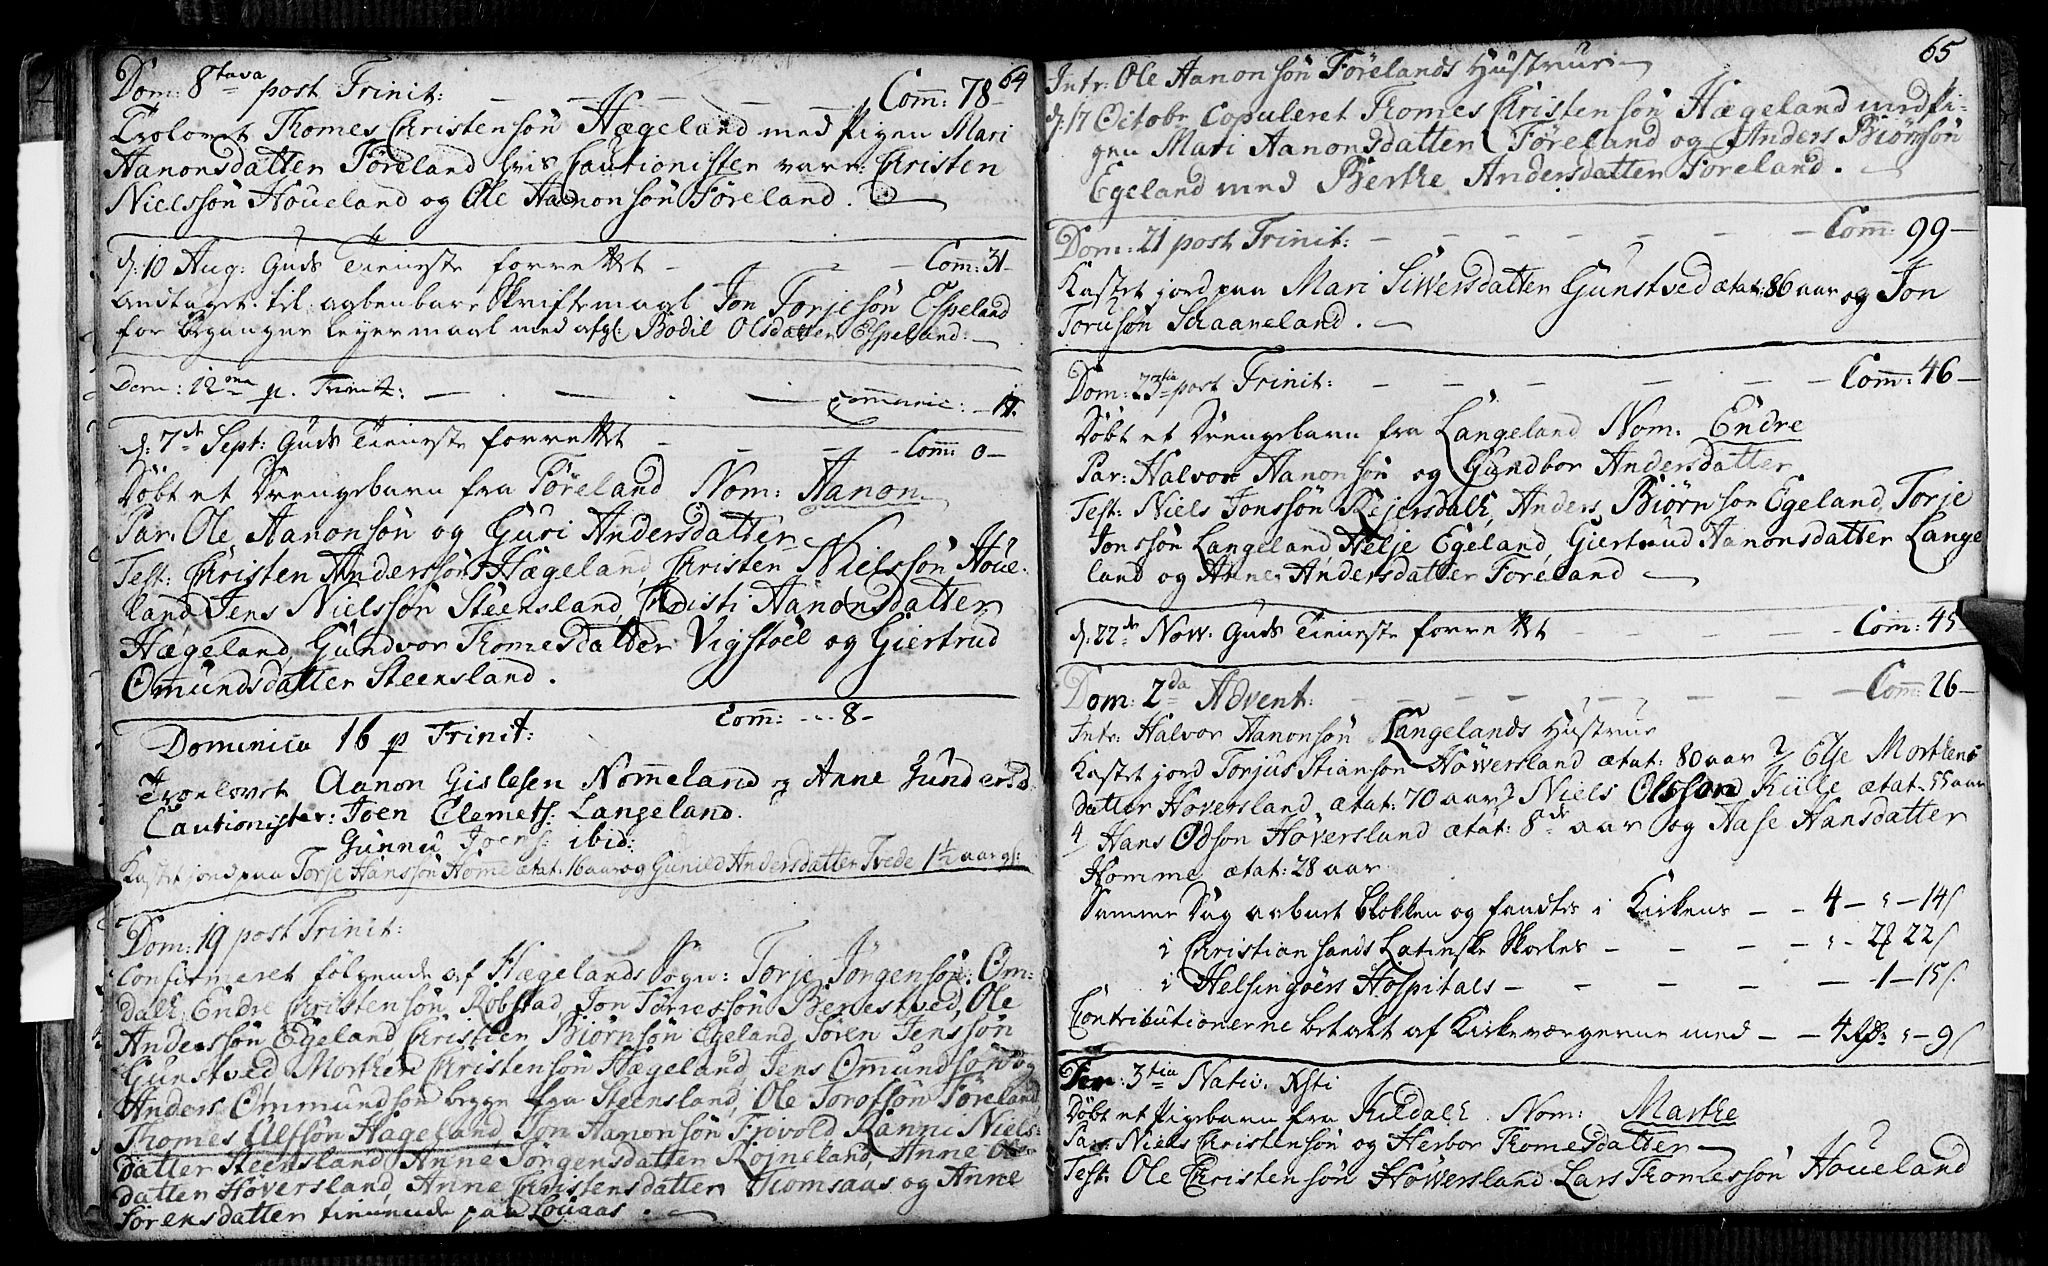 64
Dom: 8tava post Trinit: Com̄: 78-
Trolovet Thomes Christensøn Hægeland med Pigen Mari
Aanonsdatter Føreland hvis Cautionister vare: Christen
Nielssøn Houeland og Ole Aanonsøn Føreland.
d: 10 Aug: Guds Tieneste forrettet - Com̄: 31-
Andtaget til aabenbare Skriftemaal Jon Torjesøn Espeland
for begangne Leyermaal med afgl: Bodil Olsdatter Espeland.
Dom: 12ma p. Trinit: Com̄unic: - 17.
d: 7de Sept: Guds Tieneste forrettet - Com̄: 0-
Døbt et Drengebarn fra Føreland Nom: Aanon
Par: Ole Aanonsøn og Guri Andersdatter
Test: Christen Anderssøn Hægeland, Christen Nielssøn Houe-
land, Jens Nielssøn Steensland, Christi Aanonsdatter
Hægeland, Gundvor Thomesdatter Vigstøel og Giertrud
Om̄undsdatter Steensland.
Dominica 16 p Trinit: Com̄: - - - 8-
Troelovet Aanon Gislesen Nom̄eland og Anne Gundersd.
Cautionister: Joen Clemets: Langeland.
Gunnu Joens: ibid:
Kastet jord paa Torje Hanssøn Home ætat: 16 aar og Gunild Andersdatter Tvede 1½ aar gl:
Dom: 19 post Trinit:
Confirmeret følgende af Hægelands Sogn: Torje Jørgensøn Om-
dall, Endre Christensøn Robstad, Jon Tørressøn Benestved, Ole
Anderssøn Egeland, Christen Biørnsøn Egeland, Søren Jenssøn
Gunstved, Morthen Christensøn Hægeland, Jens Om̄undsøn og
Anders Ommundsøn begge fra Steensland, Ole Torofsøn Føreland,
Thomes Ulfsøn Hægeland, Jon Aanonsøn Frivold, Ranni Niels-
datter Steensland, Anne Jørgensdatter Roineland, Anne Ols-
datter Høversland, Anne Christensdatter Tiomsaas og Anne
Sørensdatter tienende paa Løuaas.
65
Intr: Ole Aanonsøn Førelands Hustrue
d: 17 Octobr Copuleret Thomes Christensøn Hægeland med Pi-
gen Mari Aanonsdatter Føreland og Anders Biørnsøn
Egeland med Berthe Andersdatter Føreland.
Dom: 21 post Trinit: Com̄: 99-
Kastet jord paa Mari Siwersdatter Gunstved ætat: 86 aar og Jon
Torusøn Skaaneland.
Dom: 23tia post Trinit: - Com̄: 46-
Døbt et Drengebarn fra Langeland Nom. Endre
Par: Halvor Aanonsøn og Gundbor Andersdatter
Test: Niels Jonssøn Reiersdall, Anders Biørnsøn Egeland, Torje
Jonssøn Langeland, Helje Egeland, Giertrud Aanonsdatter Lange
land og Anne Andersdatter Føreland
d: 22de Now: Guds Tieneste forrettet - Com̄: 45
Dom: 2da Advent: - Com̄: 26-
Intr: Halvor Aanonsøn Langelands Hustrue
Kastet jord Torjus Stiansøn Høwersland ætat: 80 aar 2/ Else Morthens
datter Høversland ætat: 70 aar 3/ Niels Olssøn Kiile ætat: 55 aar
4/ Hans Odsøn Høversland ætat: 8de aar og Aase Hansdatter
Homme ætat: 28 aar
Samme Dag aabnet Blokken og fandtes i Kirkens - - 4 - " - 14 s
i Christiansands Latinske Skoeles - - " - 2 22 s
i Helsingøers Hospitals - - 1 - 15 s
Contributionerne betalt af Kirkeværgerne med - - 4 Rd: " - 9 s
Fer: 3tia Nativ. Xsti
Døbt et Pigebarn fra Kildall. Nom: Marthe
Par: Niels Christensøn og Herbor Thomesdatter
Test: Ole Christensøn Høwersland, Lars Thomessøn Houeland